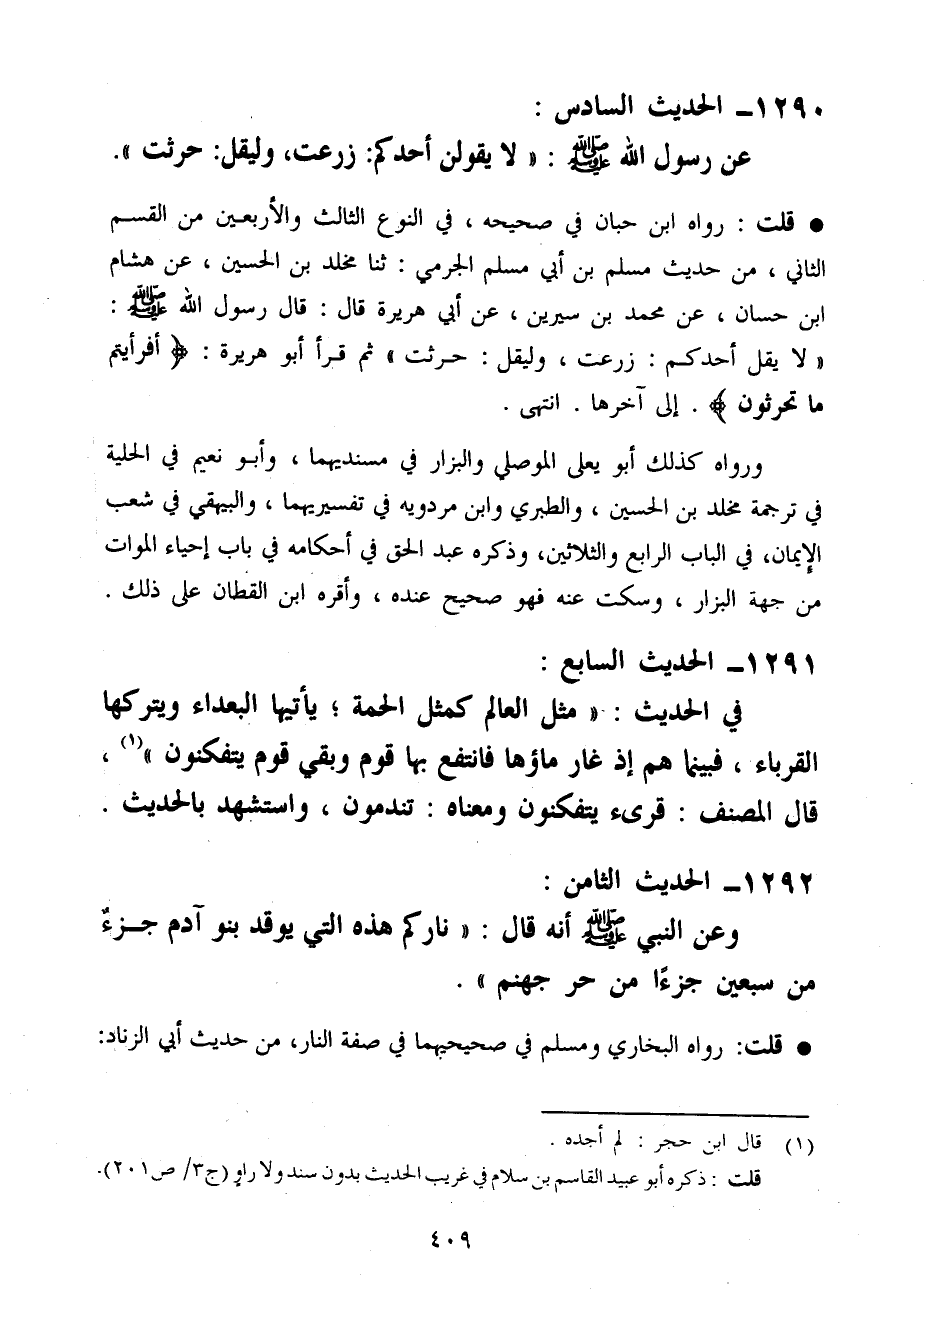 ١٢٩٠ـ الحديث السادس :
عن رسول الله ﷺ : « لا يقولن أحدكم: زرعت، وليقل: حرثت ».
● قلت : رواه ابن حبان في صحيحه ، في النوع الثالث والأربعين من القسم
الثاني ، من حديث مسلم بن أبي مسلم الجرمي : ثنا مخلد بن الحسين ، عن هشام
ابن حسان ، عن محمد بن سيرين ، عن أبي هريرة قال : قال رسول الله ﷺ :
« لا يقل أحدكم : زرعت ، وليقل : حرثت » ثم قرأ أبو هريرة : ﴿ أفرأيتم
ما تحرثون ﴾ . إلى آخرها . انتهى .
ورواه كذلك أبو يعلى الموصلي والبزار في مسنديهما ، وأبو نعيم في الحلية
في ترجمة مخلد بن الحسين ، والطبري وابن مردويه في تفسيريهما ، والبيهقي في شعب
الإيمان، في الباب الرابع والثلاثين، وذكره عبد الحق في أحكامه في باب إحياء الموات
من جهة البزار ، وسكت عنه فهو صحيح عنده ، وأقره ابن القطان على ذلك .
١٢٩١ـ الحديث السابع :
في الحديث : « مثل العالم كمثل الحمة ؛ يأتيها البعداء ويتركها
القرباء ، فبينما هم إذ غار ماؤها فانتفع بها قوم وبقي قوم يتفكنون »(١) ،
قال المصنف : قرىء يتفكنون ومعناه : تندمون ، واستشهد بالحديث .
١٢٩٢ـ الحديث الثامن :
وعن النبي ﷺ أنه قال : « ناركم هذه التي يوقد بنو آدم جزءٌ
من سبعين جزءًا من حر جهنم » .
● قلت: رواه البخاري ومسلم في صحيحيهما في صفة النار، من حديث أبي الزناد:
(١) قال ابن حجر : لم أجده .
قلت : ذكره أبو عبيد القاسم بن سلام في غريب الحديث بدون سند ولا راوٍ (ج٣/ ص٢٠١).
٤٠٩